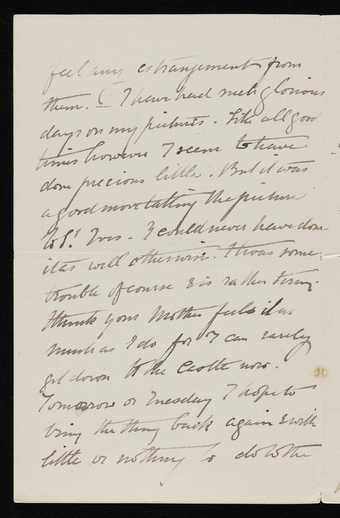 feel any estrangement from
them. I have had such glorious
days on my pictures. Like all good
times however I seem to have
done precious little. But it was
a good move taking the picture
to St Ives. I could never have done
it as well otherwise. It was some
trouble of course & is rather tiring.
I think your Mother feels it as
much as I do for I can rarely
get down to the Castle now.
Tomorrow or Tuesday I hope to
bring the thing back again & with
little or nothing to do to the